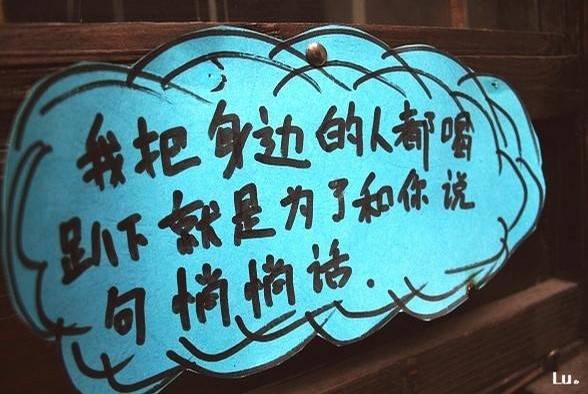 我把身边的人都喝
趴下就是为了和你说
句悄悄话.
Lu.